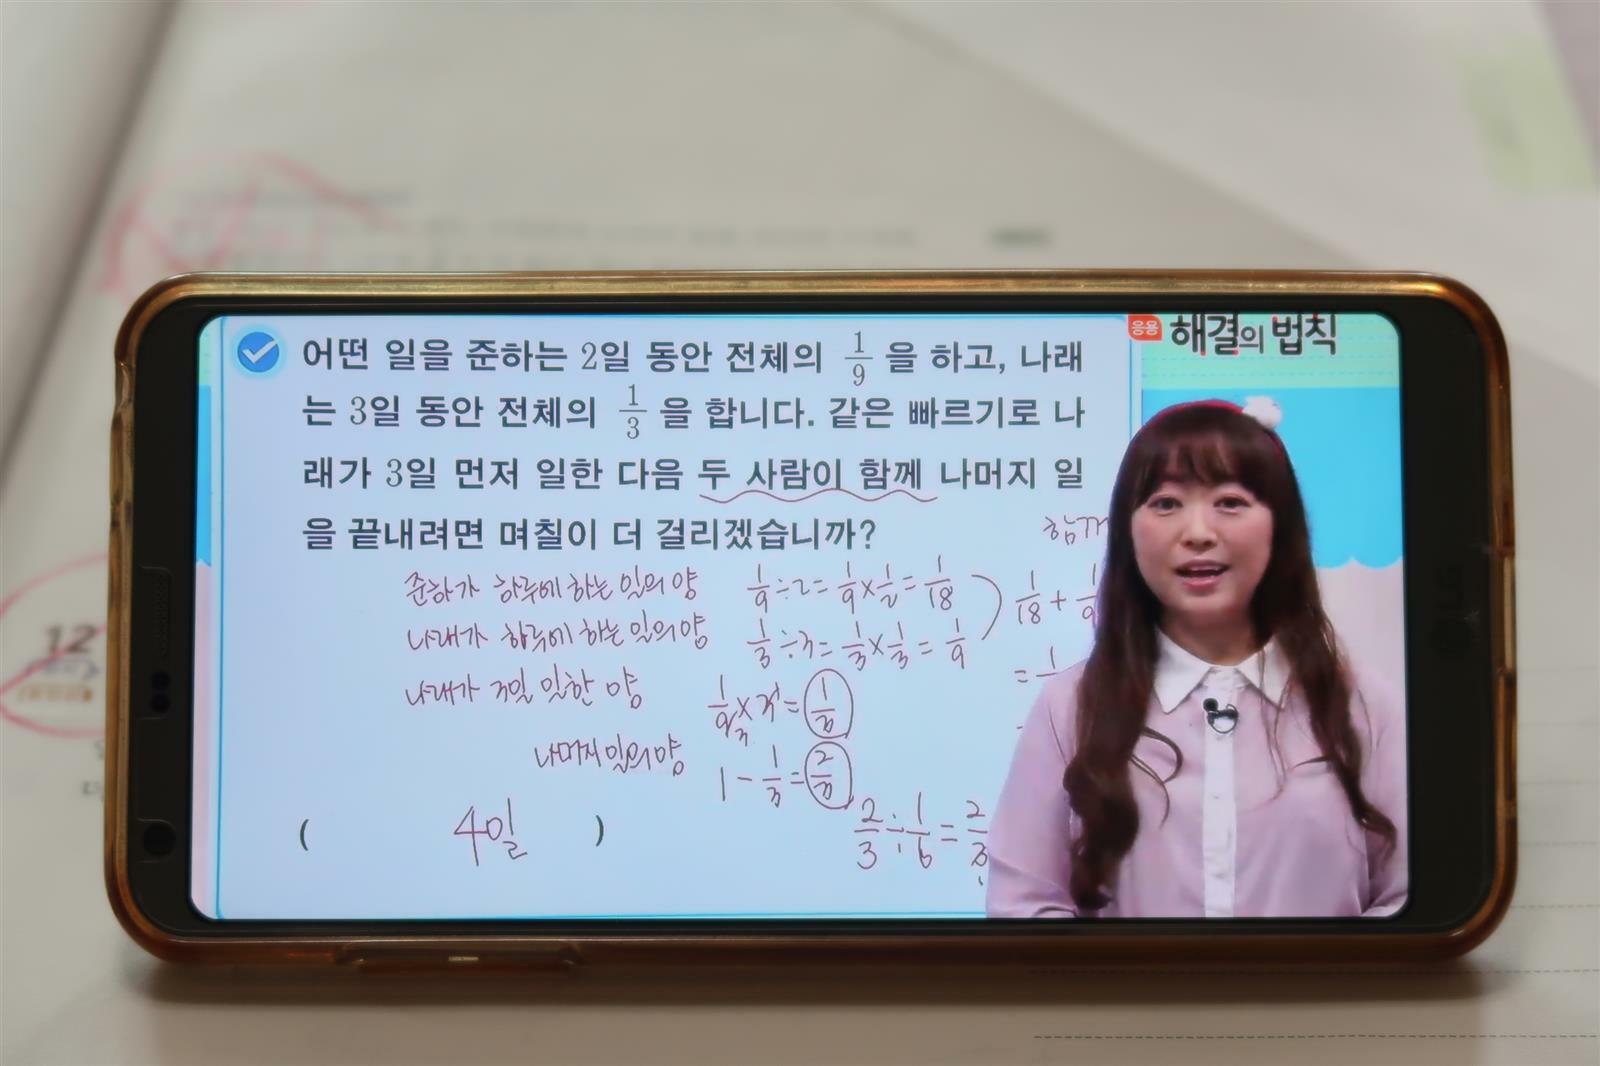 어떤 일을 준하는 2일 동안 전체의 1/9 을 하고, 나래
는 3일 동안 전체의 1/3 을 합니다. 같은 빠르기로 나
래가 3일 먼저 일한 다음 두 사람이 함께 나머지 일
을 끝내려면 며칠이 더 걸리겠습니까?
응용 해결의 법칙
함께
준하가 하루에 하는 일의 양 1/9 ÷ 2 = 1/9 × 1/2 = 1/18
나래가 하루에 하는 일의 양 1/3 ÷ 3 = 1/3 × 1/3 = 1/9
1/18 + 1/9
= 1
나래가 3일 일한 양 1/9 × 3 = 1/3
나머지 일의 양 1 - 1/3 = 2/3
( 4일 )
2/3 ÷ 1/6 = 2/3
12